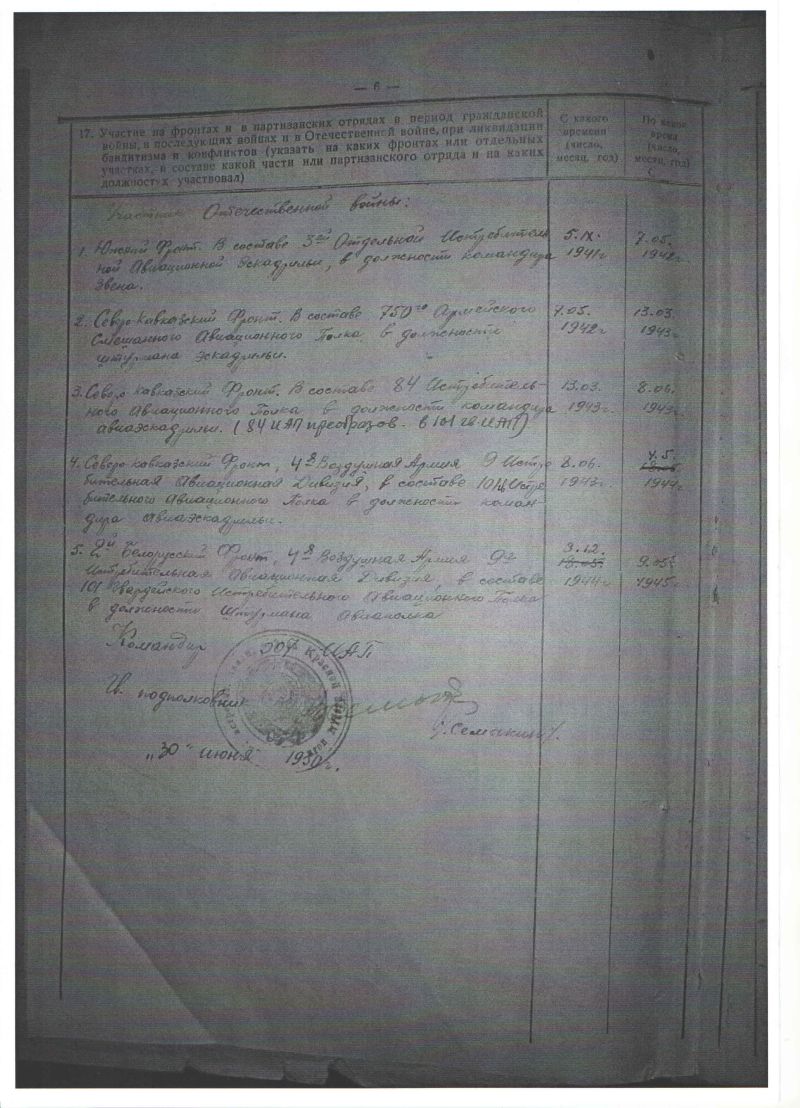 — 6 —
17. Участие на фронтах и в партизанских отрядах в период гражданской
войны, в последующих войнах и в Отечественной войне, при ликвидации
бандитизма и конфликтов (указать на каких фронтах или отдельных
участках, в составе какой части или партизанского отряда и на каких
должностях участвовал)
С какого
времени
(число,
месяц, год)
По какое
время
(число,
месяц, год)
Участник Отечественной войны:
1. Южный Фронт. В составе 3ей Отдельной Истребитель 5.IX. 7.05.
ной Авиационной Эскадрильи, в должности командира 1941г 1942г
звена.
2. Северо-Кавказский Фронт. В составе 750го Армейского 7.05. 13.03.
Смешанного Авиационного Полка в должности 1942г 1943г
штурмана эскадрильи.
3. Северо кавказский Фронт. В составе 84 Истребитель- 13.03. 8.06.
ного Авиационного Полка в должности командира 1943г 1943г
авиаэскадрильи. (84 ИАП преобразов. в 101 гв. ИАП)
4. Северо-кавказский Фронт, 4я Воздушная Армия 9 Истре 8.06. 4.5.
бительная Авиационная Дивизия, в составе Истре 1943г 1944г
бительного Авиационного Полка в должности коман-
дира авиаэскадрильи.
5. 2й Белорусский Фронт, 4я Воздушная Армия 9я 3.12. 9.05
Истребительная Авиационная Дивизия, в составе 1944г 1945г.
101 Гвардейского Истребительного Авиационного Полка
в должности Штурмана Авиаполка
Командир ИАП
Гв. подполковник
/Семыкин/.
„30" июня 1950г.
Красной